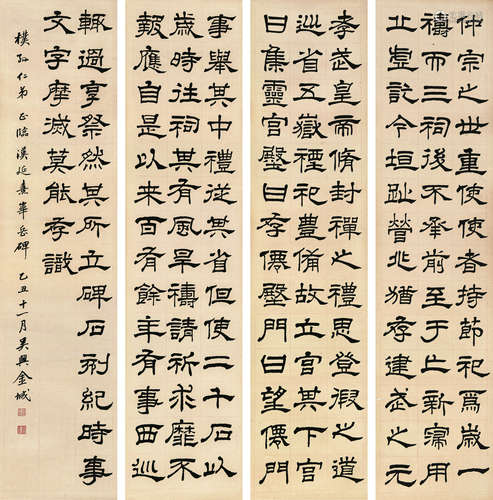 仲宗之世重使使者持節祀焉歲一
禱而三祠後不承前至于亡新寖用
丘虛訖今垣趾營兆猶存建武之元
孝武皇帝脩封禪之禮思登假之道
巡省五嶽禋祀豐備故立宮其下宮
曰集靈宮殿曰存僊殿門曰望僊門
事舉其中禮從其省但使二千石以
歲時往祠其有風旱禱請祈求靡不
報應自是以来百有餘年有事西巡
輒過享祭然其所立碑石刻紀時事
文字摩滅莫能存識
樸孫仁弟正臨漢延熹華岳碑 乙丑十一月吳興金城